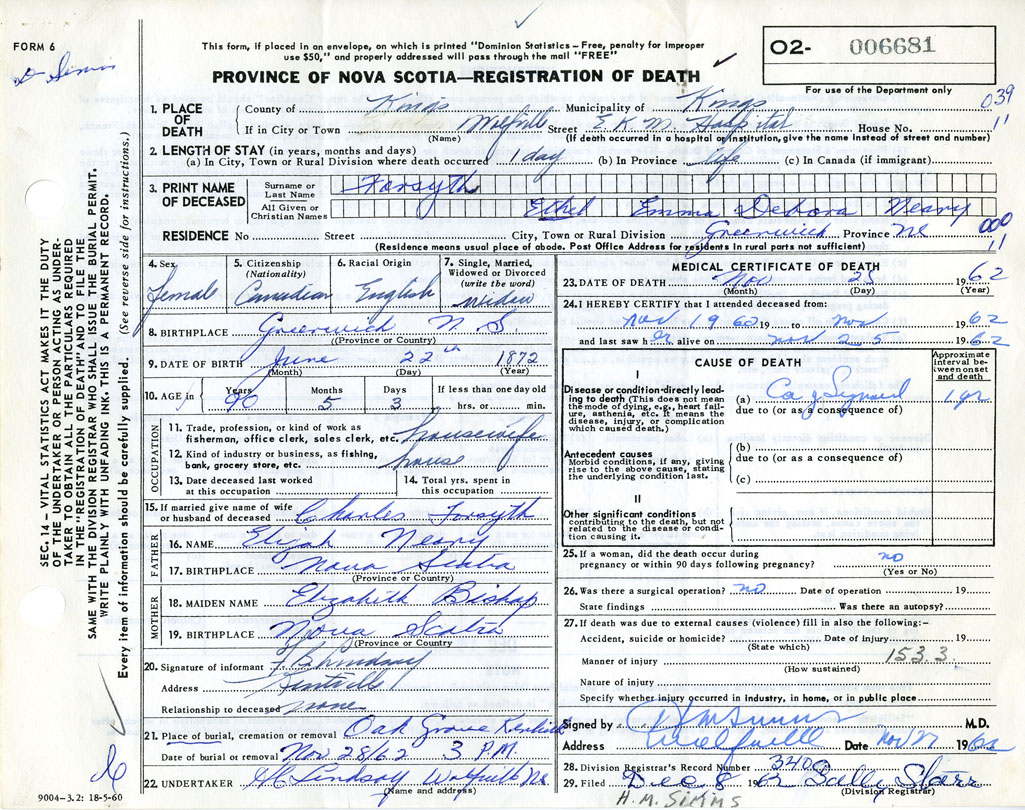 FORM 6
This form, if placed in an envelope, on which is printed "Dominion Statistics – Free, penalty for improper
use $50," and properly addressed will pass through the mail "FREE"
O2- 006681
PROVINCE OF NOVA SCOTIA—REGISTRATION OF DEATH
For use of the Department only
039
11
1. PLACE OF DEATH
County of Kings or Municipality of Kings
If in City or Town Wolfville Street E.K.M. Hospital House No.
(Name) (If death occurred in a hospital or institution, give the name instead of street and number)
2. LENGTH OF STAY (in years, months and days)
(a) In City, Town or Rural Division where death occurred 1 day (b) In Province life (c) In Canada (if immigrant)
3. PRINT NAME OF DECEASED
Surname or Last Name Forsyth
All Given or Christian Names Ethel Emma Debora Neary
000
11
RESIDENCE No Street City, Town or Rural Division Greenwich Province NS
(Residence means usual place of abode. Post Office Address for residents in rural parts not sufficient)
4. Sex Female
5. Citizenship (Nationality) Canadian
6. Racial Origin English
7. Single, Married, Widowed or Divorced (write the word) widow
8. BIRTHPLACE Greenwich N S
(Province or Country)
9. DATE OF BIRTH June 22th 1872
(Month) (Day) (Year)
10. AGE in Years 90 Months 5 Days 3 If less than one day old hrs. or min.
OCCUPATION
11. Trade, profession, or kind of work as fisherman, office clerk, sales clerk, etc. housewife
12. Kind of industry or business, as fishing, bank, grocery store, etc. house
13. Date deceased last worked at this occupation
14. Total yrs. spent in this occupation
15. If married give name of wife or husband of deceased Charles Forsyth
FATHER
16. NAME Elijah Neary
17. BIRTHPLACE Nova Scotia
(Province or Country)
MOTHER
18. MAIDEN NAME Elizabeth Bishop
19. BIRTHPLACE Nova Scotia
(Province or Country)
20. Signature of informant
Address Kentville
Relationship to deceased none
21. Place of burial, cremation or removal Oak Grove Kentville
Date of burial or removal Nov 28/62 3 P.M.
22. UNDERTAKER Lindsay Wolfville NS
(Name and address)
9004-3.2: 18-5-60
MEDICAL CERTIFICATE OF DEATH
23. DATE OF DEATH Nov 25 1962
(Month) (Day) (Year)
24. I HEREBY CERTIFY that I attended deceased from:
Nov 19 62 19 to Nov 1962
and last saw her alive on Nov 25 1962
CAUSE OF DEATH
Approximate interval between onset and death
I
Disease or condition directly leading to death (This does not mean the mode of dying, e.g., heart failure, asthenia, etc. It means the disease, injury, or complication which caused death.)
(a) Ca of Sigmoid 1 yr
due to (or as a consequence of)
Antecedent causes
Morbid conditions, if any, giving rise to the above cause, stating the underlying condition last.
(b)
due to (or as a consequence of)
(c)
II
Other significant conditions
contributing to the death, but not related to the disease or condition causing it.
25. If a woman, did the death occur during pregnancy or within 90 days following pregnancy? no
(Yes or No)
26. Was there a surgical operation? no. Date of operation 19
State findings Was there an autopsy?
27. If death was due to external causes (violence) fill in also the following:–
Accident, suicide or homicide? Date of injury 19
(State which)
Manner of injury 153.3.
(How sustained)
Nature of injury
Specify whether injury occurred in industry, in home, or in public place
Signed by H M Simms M.D.
Address Wolfville Date Nov 27 1962
28. Division Registrar's Record Number 340
29. Filed Dec 8 1962 Starr
(Division Registrar)
H.M. SIMMS
SEC. 14 – VITAL STATISTICS ACT MAKES IT THE DUTY
OF THE UNDERTAKER OR PERSON ACTING AS UNDER-
TAKER TO OBTAIN ALL THE PARTICULARS REQUIRED
IN THE "REGISTRATION OF DEATH" AND TO FILE THE
SAME WITH THE DIVISION REGISTRAR WHO SHALL ISSUE THE BURIAL PERMIT.
WRITE PLAINLY WITH UNFADING INK. THIS IS A PERMANENT RECORD.
Every item of information should be carefully supplied. (See reverse side for instructions.)